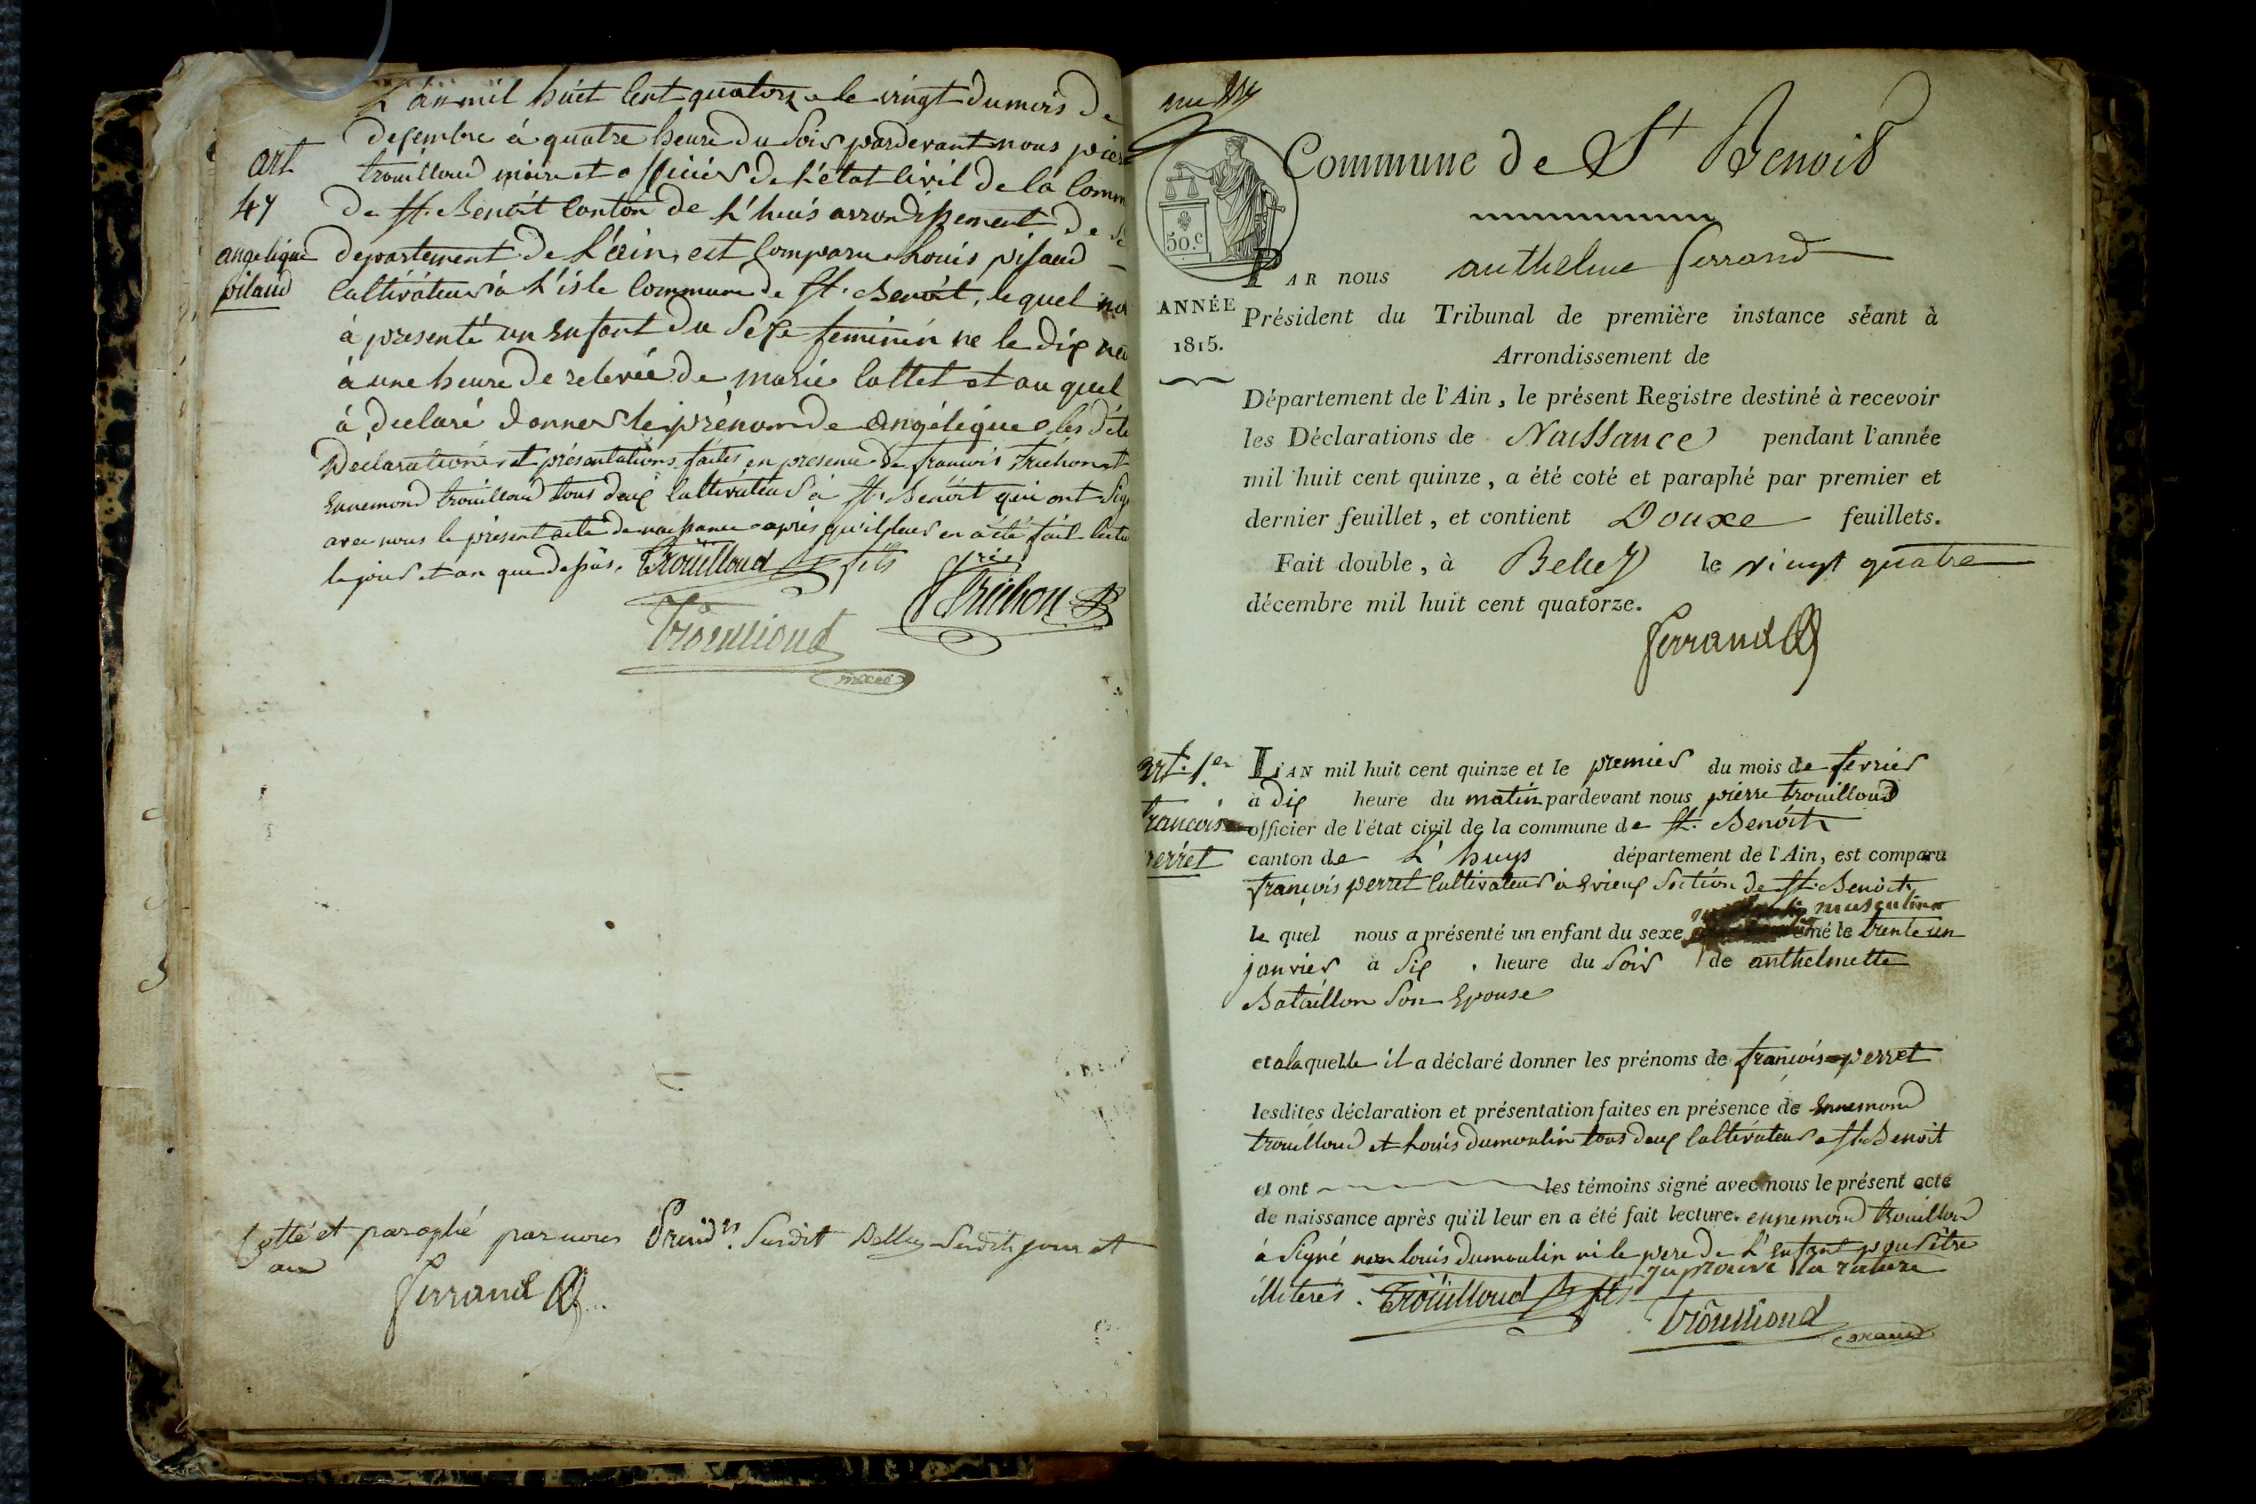 L'an mil huit Cent quatorze le vingt du mois de
desembre à quatre heure du Soir pardevant nous pierre
trouilloud maire et officier de L'état Civil de la Comm
de St. Benoit Canton de L'huis arrondissement de
departement de L'ain, est Comparu Louis pilaud
Cultivateur à L'isle Commune de St. Benoit, le quel
à presenté un Enfant du Sexe feminin né le dix
à une heure de relevée de marie Collet et au quel
à declaré donner le prénom de Angélique les dite
Declarations et présentations faites en presence de francois Trichon et
Ennemond trouilloud tous deux Cultivateur à St. Benoit qui ont
avec nous le présent acte de naissance après qu'il leur en a été fait
le jour et an que dessus. Trouilloud fils
Trichon
Trouilloud
maire
art
47
angelique
pilaud
Cotté et paraphé par nous Presidt. Susdit Belley Susdits jour et
an
Ferrand
Commune de St Benoit
50.c
ANNÉE
1815.
PAR nous anthelme ferrand
Président du Tribunal de première instance séant à
Arrondissement de
Département de l'Ain, le présent Registre destiné à recevoir
les Déclarations de Naissance pendant l'année
mil huit cent quinze, a été coté et paraphé par premier et
dernier feuillet, et contient Douze feuillets.
Fait double, à Belley le vingt quatre
décembre mil huit cent quatorze.
Ferrand
art. 1er
francois
perret
L'AN mil huit cent quinze et le premier du mois de fevrier
à dix heure du matin pardevant nous pierre trouilloud
officier de l'état civil de la commune de St. Benoit
canton de L'huys département de l'Ain, est comparu
françois perret Cultivateur à Evieux Section de St. Benoit
le quel nous a présenté un enfant du sexe masculin né le trente un
janvier à Six heure du Soir de anthelmette
Bataillon Son Epouse
et a laquelle il a déclaré donner les prénoms de françois perret
lesdites déclaration et présentation faites en présence de Ennemond
trouilloud et Louis dumoulin tous deux Cultivateur a St. Benoit
et ont les témoins signé avec nous le présent acte
de naissance après qu'il leur en a été fait lecture. ennemond trouilloud
à Signé non louis dumoulin ni le pere de L'enfant pour être
illiterés. japrouve la rature
Trouilloud fils
Trouilloud
maire